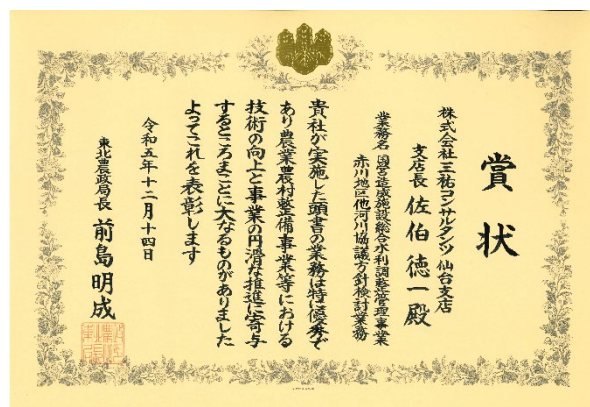 賞状
株式会社三祐コンサルタンツ仙台支店
支店長 佐伯徳一殿
業務名 国営造成施設総合水利調整管理事業
赤川地区他河川協議方針検討業務
貴社が実施した頭書の業務は特に優秀で
あり農業農村整備事業等における
技術の向上と事業の円滑な推進に寄与
するところまことに大なるものがありました
よってこれを表彰します
令和五年十二月十四日
東北農政局長 前島明成